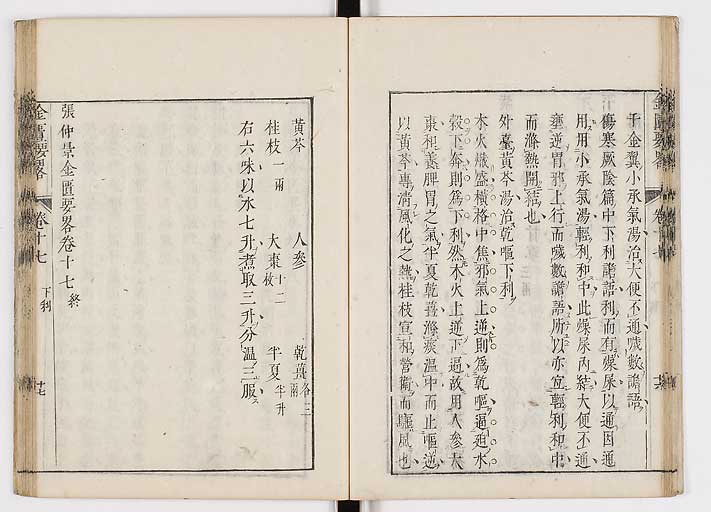 千金翼小承氣湯治大便不通噦數譫語
傷寒厥陰篇中下利譫語利而有燥屎以通因通
用用小承氣湯輕利和中此燥屎內結大便不通
壅逆胃邪上行而噦數譫語所以亦宜輕利和中
而滌熱開結也
外臺黃芩湯治乾嘔下利
木火熾盛橫格中焦邪氣上逆則爲乾嘔逼廹水
穀下奔則爲下利然木火上逆下逼故用人參大
棗和養脾胃之氣半夏乾姜滌痰溫中而止嘔逆
以黃芩專淸風化之熱桂枝宣和營衞而驅風也
黃芩 人參 乾姜各三兩
桂枝一兩 大棗十二枚 半夏半升
右六味以水七升煮取三升分溫三服
張仲景金匱要畧卷十七終
金匱要畧 卷十七 下利 十七